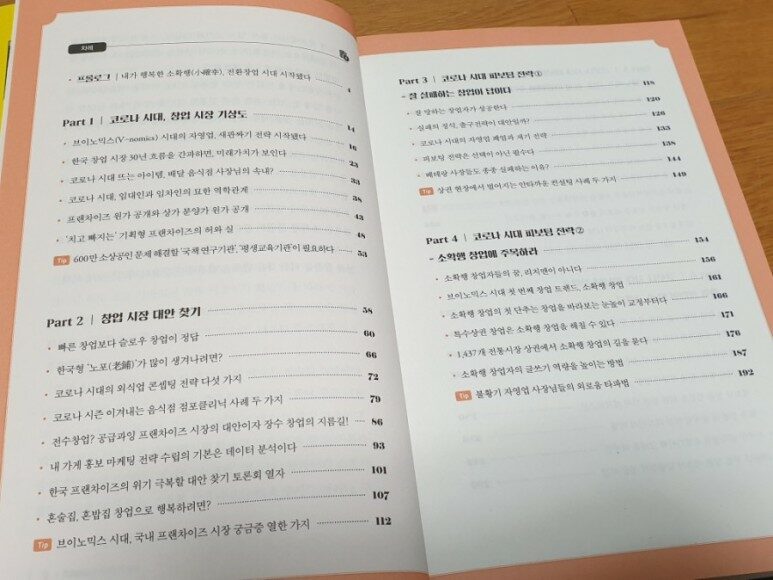 차례
• 프롤로그 | 내가 행복한 소확행(小確幸), 전환창업 시대 시작됐다 4
Part 1 | 코로나 시대, 창업 시장 기상도 14
• 브이노믹스(V-nomics) 시대의 자영업, 새판짜기 전략 시작됐다 16
• 한국 창업 시장 30년 흐름을 간과하면, 미래가치가 보인다 23
• 코로나 시대 뜨는 아이템, 배달 음식점 사장님의 속내? 33
• 코로나 시대, 임대인과 임차인의 묘한 역학관계 38
• 프랜차이즈 원가 공개와 상가 분양가 원가 공개 43
• '치고 빠지는' 기획형 프랜차이즈의 허와 실 48
Tip 600만 소상공인 문제 해결할 '국책 연구기관', '평생교육기관'이 필요하다 53
Part 2 | 창업 시장 대안 찾기 58
• 빠른 창업보다 슬로우 창업이 정답 60
• 한국형 '노포(老鋪)'가 많이 생겨나려면? 66
• 코로나 시대의 외식업 콘셉팅 전략 다섯 가지 72
• 코로나 시즌 이겨내는 음식점 점포클리닉 사례 두 가지 79
• 전수창업? 공급과잉 프랜차이즈 시장의 대안이자 장수 창업의 지름길! 86
• 내 가게 홍보 마케팅 전략 수립의 기본은 데이터 분석이다 93
• 한국 프랜차이즈의 위기 극복할 대안 찾기 토론회 열자 101
• 혼술집, 혼밥집 창업으로 행복하려면? 107
Tip 브이노믹스 시대, 국내 프랜차이즈 시장 궁금증 열한 가지 112
Part 3 | 코로나 시대 피보팅 전략①
- 잘 실패하는 창업이 답이다 118
• 잘 망하는 창업자가 성공한다 120
• 실패의 정석, 출구전략이 대안일까? 126
• 코로나 시대의 자영업 폐업과 재기 전략 133
• 피보팅 전략은 선택이 아닌 필수다 138
• 베테랑 사장들도 종종 실패하는 이유? 144
Tip 상권 현장에서 벌어지는 안타까운 컨설팅 사례 두 가지 149
Part 4 | 코로나 시대 피보팅 전략②
- 소확행 창업에 주목하라 154
• 소확행 창업자들의 꿈, 리치맨이 아니다 156
• 브이노믹스 시대 첫 번째 창업 트렌드, 소확행 창업 161
• 소확행 창업의 첫 단추는 창업을 바라보는 눈높이 교정부터다 166
• 특수상권 창업은 소확행 창업을 해칠 수 있다 171
• 1,437개 전통시장 상권에서 소확행 창업의 길을 묻다 176
• 소확행 창업자의 글쓰기 역량을 높이는 방법 187
Tip 불황기 자영업 사장님들의 외로움 타파법 192